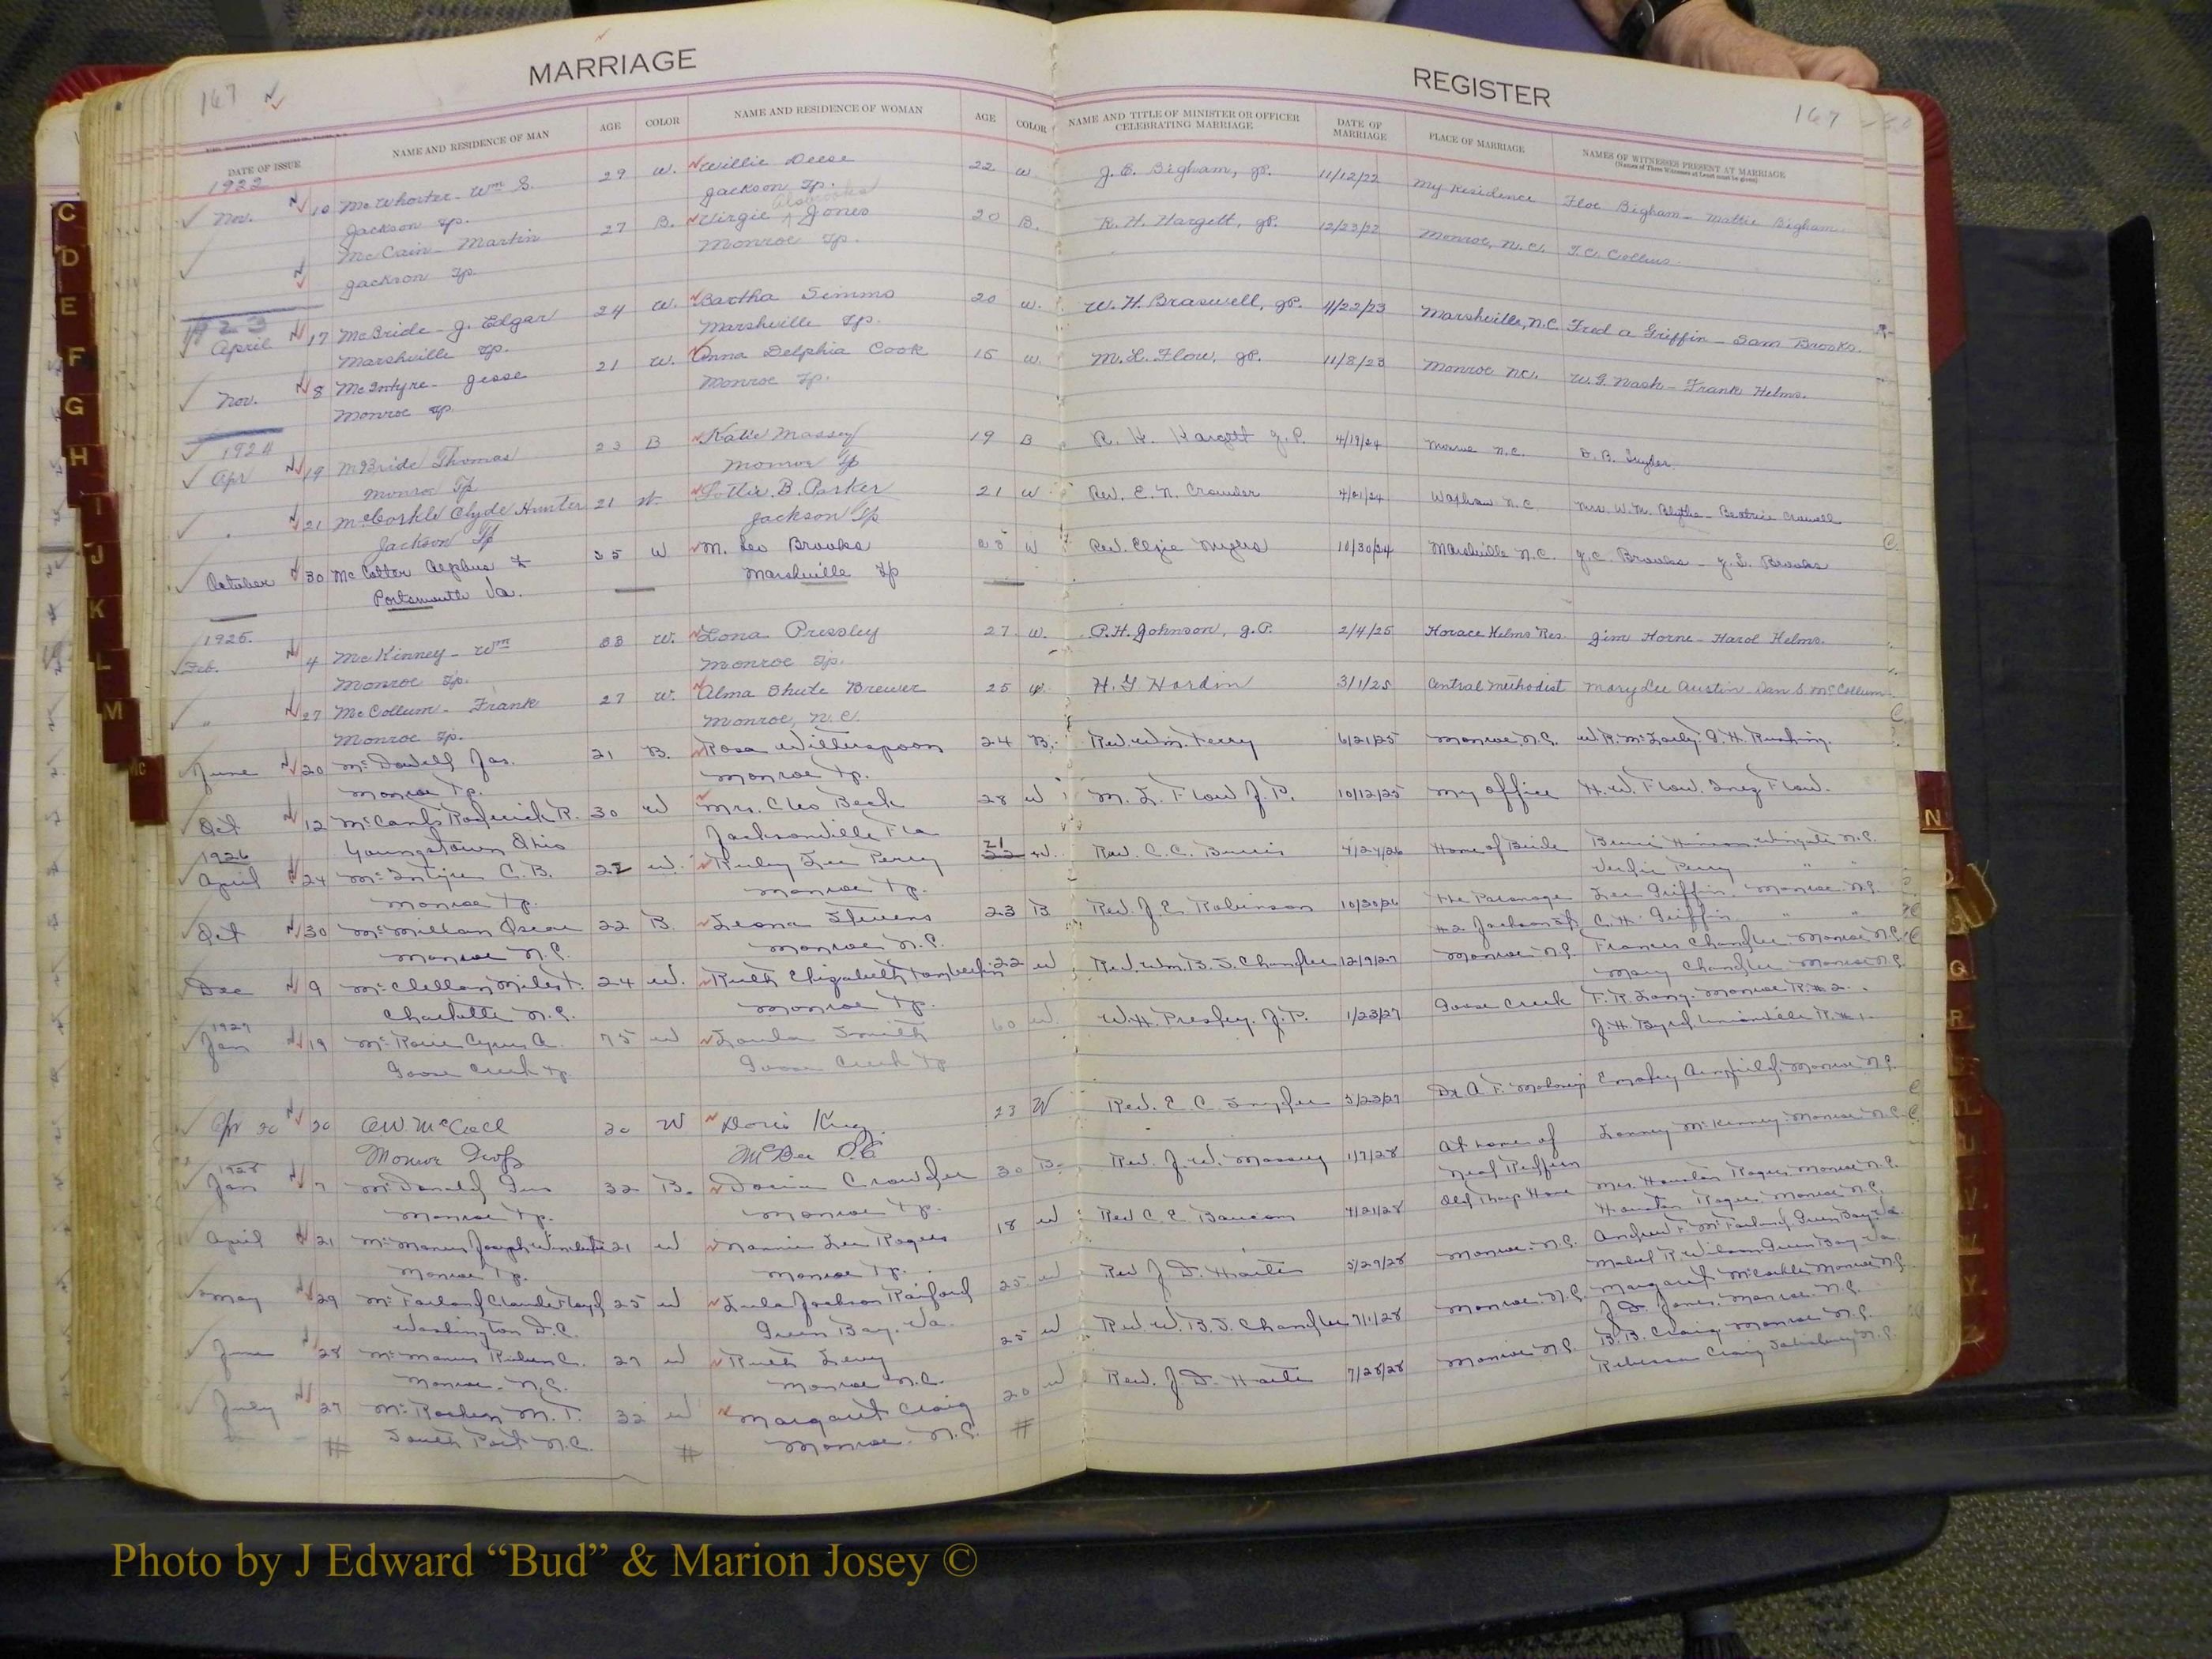 MARRIAGE
REGISTER
167
167
DATE OF ISSUE
NAME AND RESIDENCE OF MAN
AGE
COLOR
NAME AND RESIDENCE OF WOMAN
AGE
COLOR
NAME AND TITLE OF MINISTER OR OFFICER
CELEBRATING MARRIAGE
DATE OF
MARRIAGE
PLACE OF MARRIAGE
NAMES OF WITNESSES PRESENT AT MARRIAGE
1922
Nov. 10 McWhorter - Wm S. 29 W. Willie Deese 22 W J. E. Bigham, JP. 11/12/22 My Residence Floe Bigham - Mattie Bigham
Jackson Tp. Jackson Tp.
McCain - Martin 27 B. Virgie Jones 20 B. R. H. Hargett, JP. 12/23/22 Monroe, N.C. T.C. Collins
Jackson Tp. Monroe Tp.
1923
April 17 McBride - J. Edgar 24 W. Bertha Simms 20 W. W. H. Braswell, JP. 4/22/23 Marshville, N.C. Fred A Griffin - Sam Brooks.
Marshville Tp. Marshville Tp.
Nov. 8 McIntyre - Jesse 21 W. Anna Delphia Cook 15 W. M. L. Flow, JP. 11/8/23 Monroe NC. W. G. Nash - Frank Helms.
Monroe Tp. Monroe Tp.
1924
Apr 19 McBride Thomas 23 B Katie Massey 19 B R. H. Hargett J.P. 4/19/24 Monroe N.C. D. B. Snyder
Monroe Tp Monroe Tp
" 21 McCorkle Clyde Hunter 21 W. Lottie B. Parker 21 W Rev. E. N. Crowder 4/21/24 Waxhaw N.C. Mrs. W. M. Blythe - Beatrice Crowell
Jackson Tp Jackson Tp
October 30 35 W M. Leo Brooks 23 W Rev. Elzie Myers 10/30/24 Marshville N.C. J. C. Brooks - J. S. Brooks
Portsmouth Va. Marshville Tp
1925.
Feb. 4 McKinney - Wm 33 W. Lona Pressley 27 W. P. H. Johnson, J.P. 2/4/25 Horace Helms Res. Jim Horne - Harol Helms.
Monroe Tp. Monroe Tp.
" 27 McCollum - Frank 27 W. Alma Shute Brewer 25 W. H. G Hardin 3/1/25 Central Methodist Mary Lee Austin Dan S. McCollum
Monroe Tp. Monroe, N.C.
June 20 McDowell Jas. 21 B. Rosa Witherspoon 24 B. Rev. Wm. Ferry 6/21/25 Monroe, N.C.
Monroe Tp. Monroe Tp.
Oct 12 Roderick R. 30 W Mrs. Cleo Beck 28 W M. L. Flow J.P. 10/12/25 My office H. W. Flow. Inez Flow.
Youngstown Ohio Jacksonville Fla
1926
April 24 McIntyre C. B. 22 W. Ruby Lee Perry 21 W. Rev. C. C. Burris 4/24/26 Home of Bride Hinson Wingate N.C.
Monroe Tp. Monroe Tp. Perry " "
Oct 30 McMillan Oscar 22 B. Leona Stevens 23 B Rev. J. E. Robinson 10/30/26 The Parsonage Lee Griffin, Monroe N.C.
Monroe N.C. Monroe N.C. Jackson St C. H. Griffin " "
Dec 9 McClellan Miles F. 24 W. Ruth Elizabeth 22 W Rev. Wm. B. S. Chandler Monroe N.C. Frances Chandler Monroe N.C.
Charlotte N.C. Monroe Tp. Mary Chandler Monroe N.C.
1927
Jan 19 Cyrus A. 75 W Smith 60 W. W. H. Presley. J.P. 1/23/27 Goose Creek F. R. Long. Monroe R. # 2.
Goose Creek Tp. Goose Creek Tp J. H. Byrd Unionville R. # 1.
Apr 30 30 W Doris King 23 W Rev. E. C. Snyder Monroe N.C.
Monroe McBee S.C
1928
Jan 7 McDonald Gus 32 B. Crowder 30 B. Rev. J. W. Massey 1/7/28 At home of Lonney McKinney. Monroe N.C.
Monroe Tp. Monroe Tp. Neal Ruffin
April 21 McManus Joseph 21 W Nannie Lee Rogers 18 W Rev C. E. Baucom 4/21/28 Mrs. Houston Rogers Monroe N.C.
Monroe Tp. Monroe Tp. Houston Rogers Monroe N.C.
May 29 McFarland Claude Floyd 25 W Lula Jackson Raiford 25 W Rev J. D. 5/29/28 Monroe. N.C. Andrew F. McFarland, Green Bay. Va.
Washington D.C. Green Bay. Va. Mabel R. Wilson Green Bay Va.
June 28 McManus 27 W Ruth 25 W Rev. W. B. S. Chandler 7/1/28 Monroe. N.C. Margaret McCorkle Monroe N.C.
Monroe. N.C. Monroe N.C. J. D. Jones. Monroe. N.C.
July 27 M. T. 32 W Margaret Craig 20 W Rev. J. D. 7/28/28 Monroe N.C. B. B. Craig Monroe N.C.
South Port N.C. Monroe. N.C. Rebecca Craig Salisbury N.C.
# # #
C
D
E
F
G
H
I
J
K
L
M
Mc
N
Q
R
Photo by J Edward “Bud” & Marion Josey ©